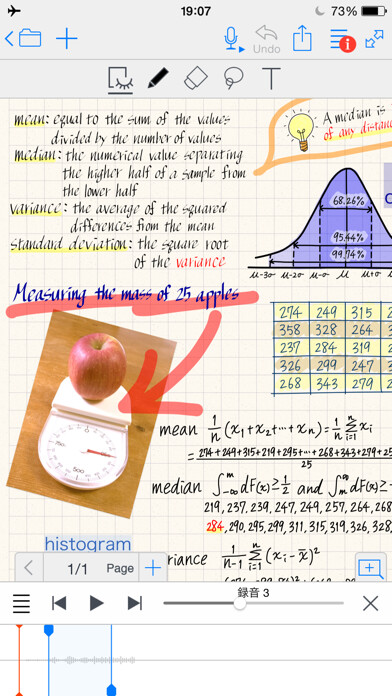 19:07
73%
Undo
T
mean: equal to the sum of the values
divided by the number of values
median: the numerical value separating
the higher half of a sample from
the lower half
variance: the average of the squared
differences from the mean
standard deviation: the square root
of the variance
A median is
of any distanc
68.26%
95.44%
99.74%
μ-3σ μ-2σ μ-σ μ μ+σ
Measuring the mass of 25 apples
274 249 315 2
358 328 264 3
237 284 319
326 299 247 3
268 343 279 2
mean 1/n (x₁+x₂+…+xₙ) = 1/n Σⁿᵢ₌₁ xᵢ
= 274+249+315+219+295+…+268+343+279+25
25
median ∫ᵐ₋∞ dF(x) ≥ 1/2 and ∫∞ₘ dF(x) ≥
219, 237, 239, 247, 249, 257, 264, 268
284, 290, 295, 299, 311, 315, 319, 326, 328,
histogram
riance 1/n-1 Σⁿᵢ₌₁ (xᵢ - x̄)²
1/1 Page
録音 3